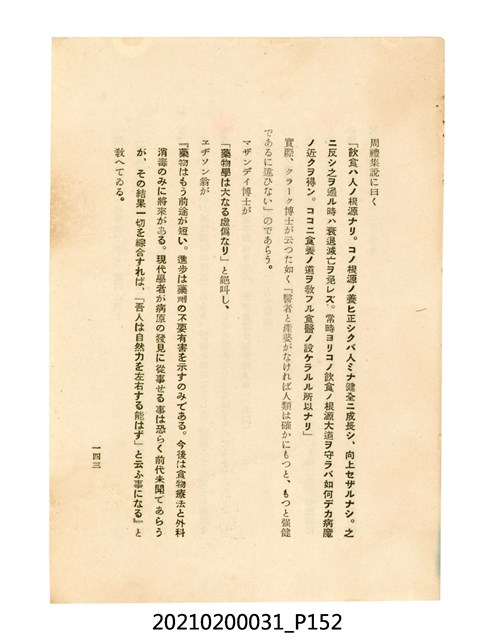 周禮集說に曰く
「飮食ハ人ノ根源ナリ。コノ根源ノ養ヒ正シクバ人ミナ健全ニ成長シ、向上セザルナシ。之
ニ反シ之ヲ過ル時ハ衰退滅亡ヲ免レズ。常時ヨリコノ飮食ノ根源大道ヲ守ラバ如何デカ病魔
ノ近クヲ得ン。ココニ食養ノ道ヲ敎フル食醫ノ設ケラルル所以ナリ」
實際、クラーク博士が云つた如く「醫者と產婆がなければ人類は確かにもつと、もつと强健
であるに違ひない」のであらう。
マザンデイ博士が
「藥物學は大なる虛僞なり」と絕叫し、
エヂソン翁が
『藥物はもう前途が短い。進步は藥劑の不要有害を示すのみである。今後は食物療法と外科
消毒のみに將來がある。現代學者が病原の發見に從事せる事は恐らく前代未聞であらう
が、その結果一切を綜合すれば、「吾人は自然力を左右する能はず」と云ふ事になる』と
敎へてゐる。
一四三
20210200031_P152